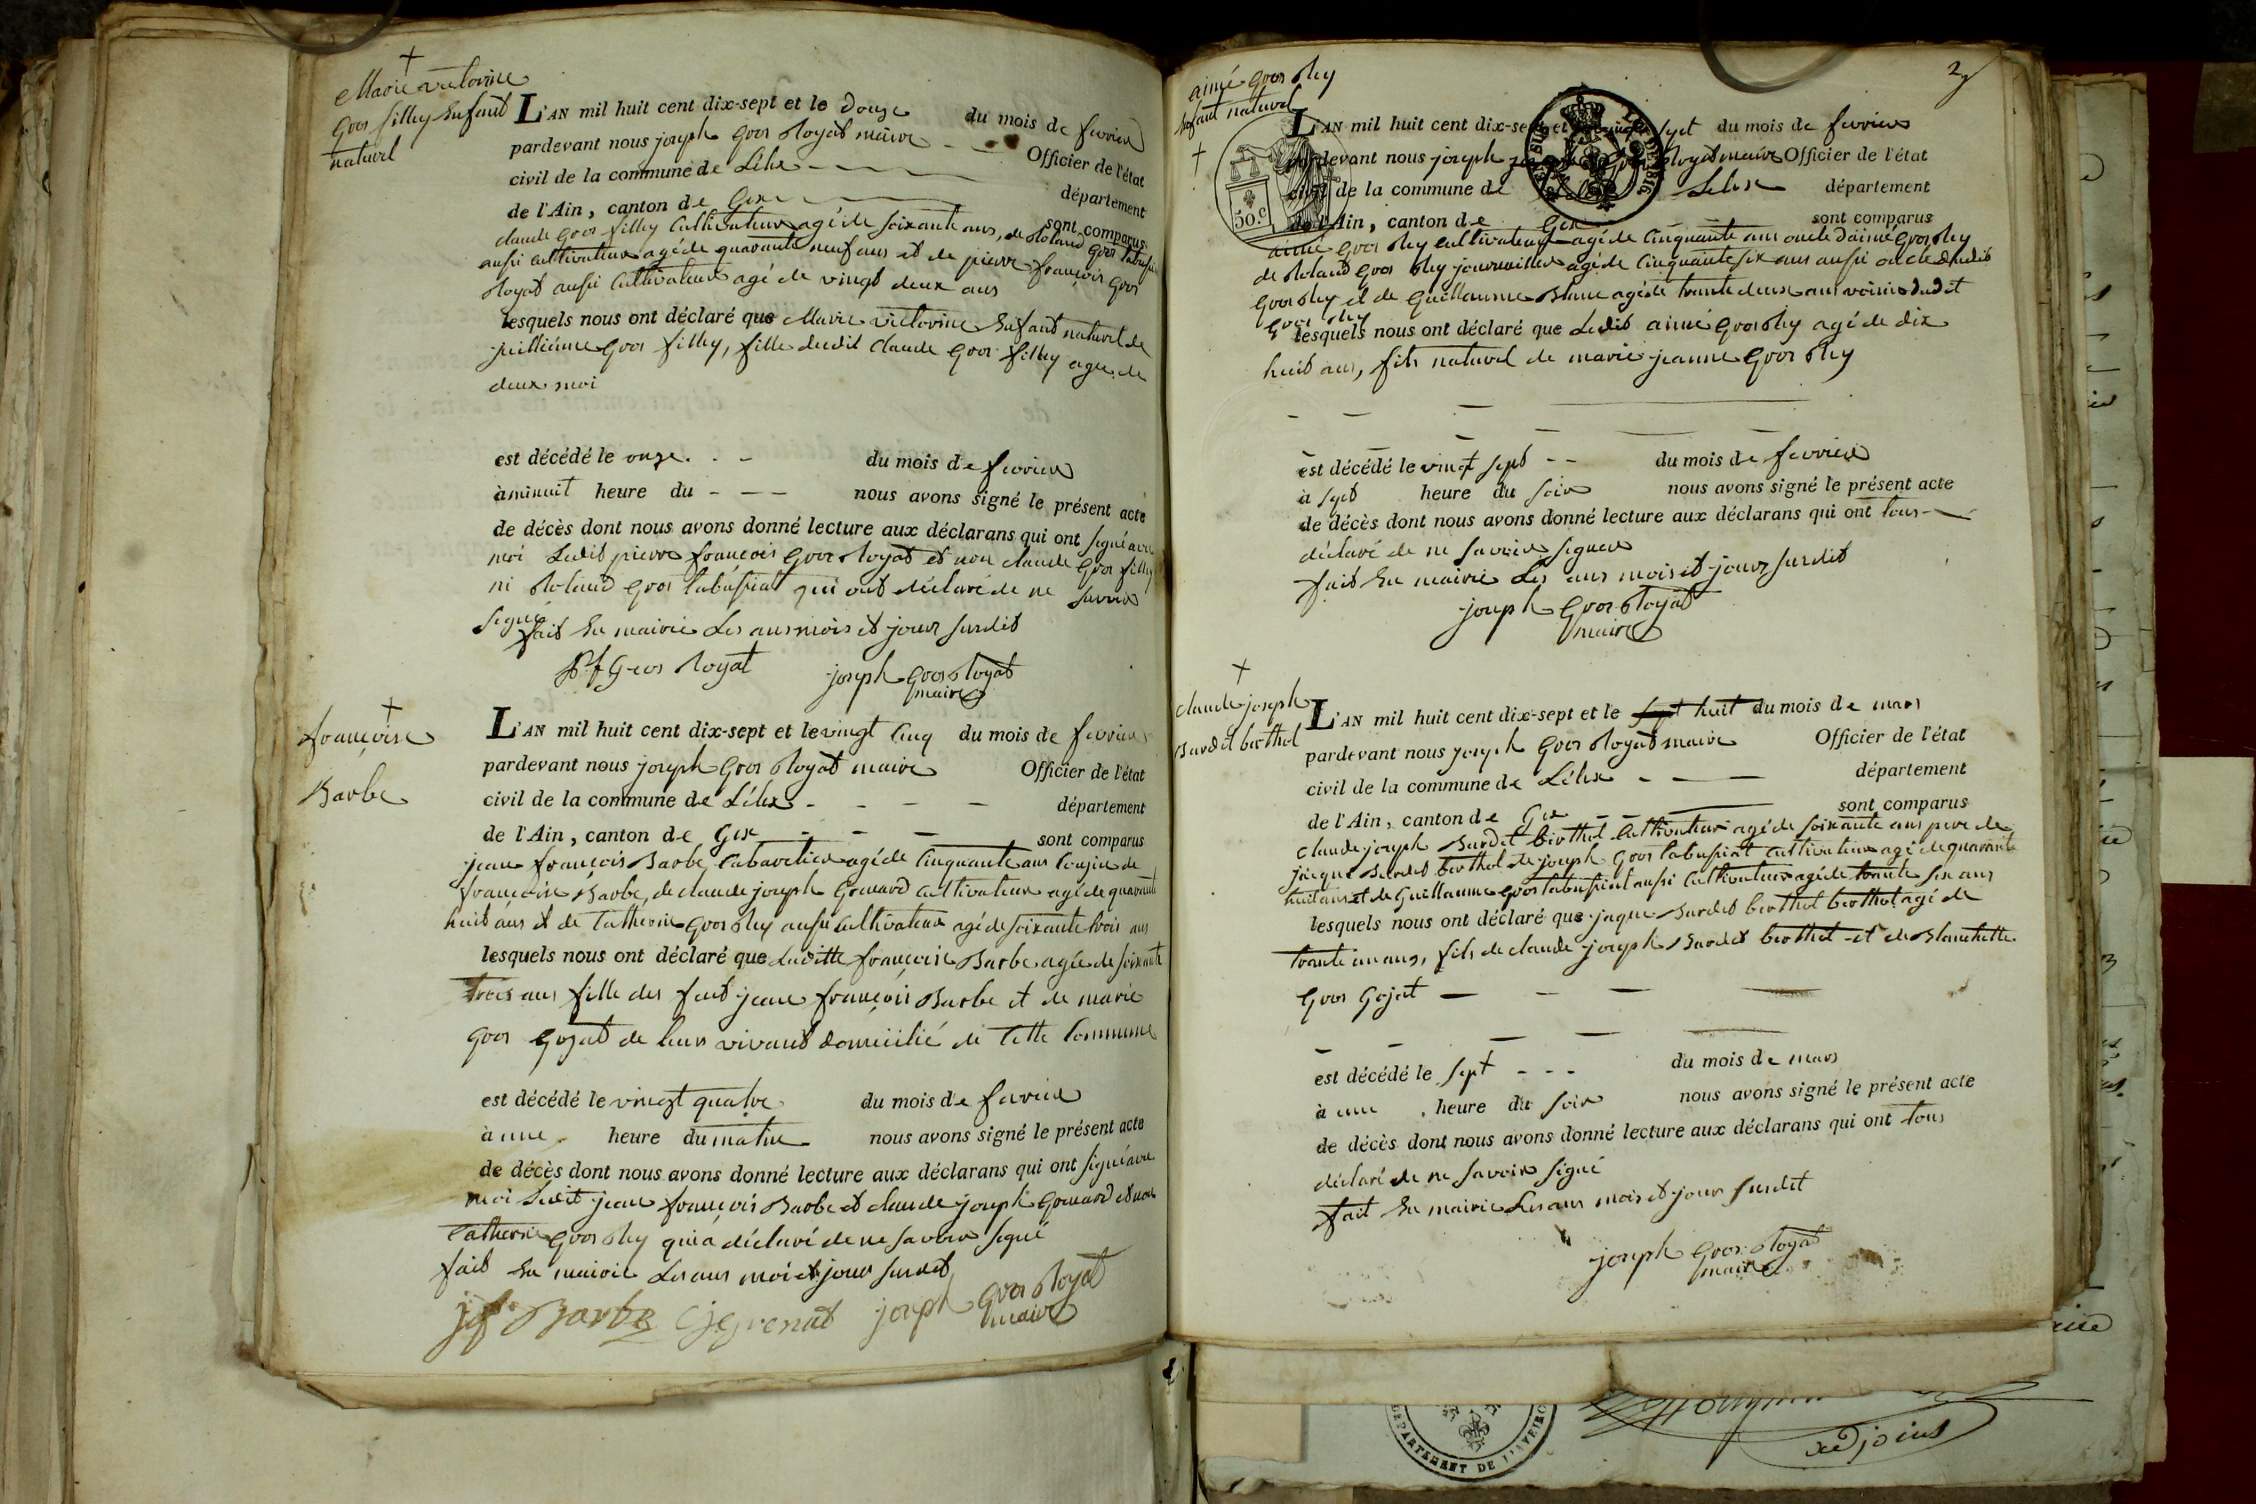 Marie victorine
Gros filley Enfant
naturel
L'AN mil huit cent dix-sept et le douze du mois de fevrier
pardevant nous joseph Gros Royat maire Officier de l'état
civil de la commune de Lélex département
de l'Ain, canton de Gex sont comparus
claude Gros filley Cultivateur agé de soixante ans, de Roland Gros labuspiat
aussi cultivateur agé de quarante neuf ans et de pierre françois Gros
Royat aussi Cultivateur agé de vingt deux ans
lesquels nous ont déclaré que Marie victorine Enfant naturel de
Gros filley, fille dudit Claude Gros filley agee de
deux moi
est décédé le onze du mois de fevrier
à minuit heure du nous avons signé le présent acte
de décès dont nous avons donné lecture aux déclarans qui ont signé avec
moi Ledit pierre françois Gros Royat et non claude Gros filley
ni Roland Gros labuspiat qui ont déclaré de ne savoir
signé
fait En mairie Les ans mois et jour susdit
p. f Gros Royat joseph Gros Royat
maire
françoise
Barbe
L'AN mil huit cent dix-sept et le vingt Cinq du mois de fevrier
pardevant nous joseph Gros Royat maire Officier de l'état
civil de la commune de Lélex département
de l'Ain, canton de Gex sont comparus
jean françois Barbe Cabaretier agé de Cinquante ans Cousin de
françoise Barbe, de claude joseph Grenard Cultivateur agé de quarante
huit ans et de Catherin Gros Rey aussi Cultivateur agé de soixante trois ans
lesquels nous ont déclaré que Laditte françoise Barbe agée de soixante
trois ans fille des feut jean françois Barbe et de marie
Gros Gojat de leurs vivant domicilié de Cette Commune
est décédé le vingt quatre du mois de fevrier
à une heure du matin nous avons signé le présent acte
de décès dont nous avons donné lecture aux déclarans qui ont signé avec
moi Ledit jean françois Barbe et claude joseph Grenard et non
Catherin Gros Rey qui a déclaré de ne savoir signé
fait En mairie Les ans moi et jour susdit
jf Barbe Cj grenard joseph Gros Royat
maire
2
aimé Gros Rey
Enfant naturel
L'AN mil huit cent dix-sept et le vingt sept du mois de fevrier
pardevant nous joseph Gros Royat maire Officier de l'état
civil de la commune de Lelex département
de l'Ain, canton de Gex sont comparus
50.C
LOI DE 1816
aimé Gros Rey Cultivateur agé de Cinquante ans oncle d'aimé Gros Rey
de Roland Gros Rey journailler agé de Cinquante six ans aussi oncle dudit
Gros Rey et de Guillaume Blanc agé de trante deux ans voisin dudit
Gros Rey
lesquels nous ont déclaré que Ledit aimé Gros Rey agé de dix
huit ans, fils naturel de marie jeanne Gros Rey
est décédé le vingt sept du mois de fevrier
à sept heure du soir nous avons signé le présent acte
de décès dont nous avons donné lecture aux déclarans qui ont tous
déclaré de ne savoir signer
fait En mairie Les ans mois et jour susdit
joseph Gros Royat
maire
claude joseph
Burdet berthet
L'AN mil huit cent dix-sept et le sept huit du mois de mars
pardevant nous joseph Gros Royat maire Officier de l'état
civil de la commune de Lélex département
de l'Ain, canton de Gex sont comparus
Claude joseph Burdet berthet Cultivateur agé de soixante ans pere de
jacque Burdet berthet de joseph Gros labuspiat Cultivateur agé de quarante
huit ans et de Guillaume Gros labuspiat aussi Cultivateur agé de trante six ans
lesquels nous ont déclaré que jaque Burdet berthet berthet agé de
trante un ans, fils de claude joseph Burdet berthet et de Blanchette
Gros Gojat
est décédé le sept du mois de mars
à une heure du soir nous avons signé le présent acte
de décès dont nous avons donné lecture aux déclarans qui ont tous
déclaré de ne savoir signé
fait En mairie Les ans mois et jour susdit
joseph Gros Royat
maire
DEPARTEMENT DE L'AVEIRON
adjoint